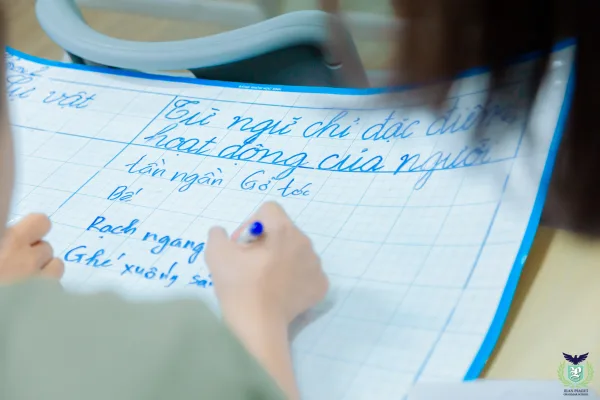 sự vật
Từ ngữ chỉ đặc điểm
hoạt động của người
tần ngần Gỡ tóc
Bế
Rạch ngang
Ghé xuống sá
JEAN PIAGET